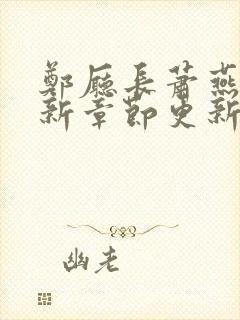 鄭廳長蕭燕
新章節更新
幽老